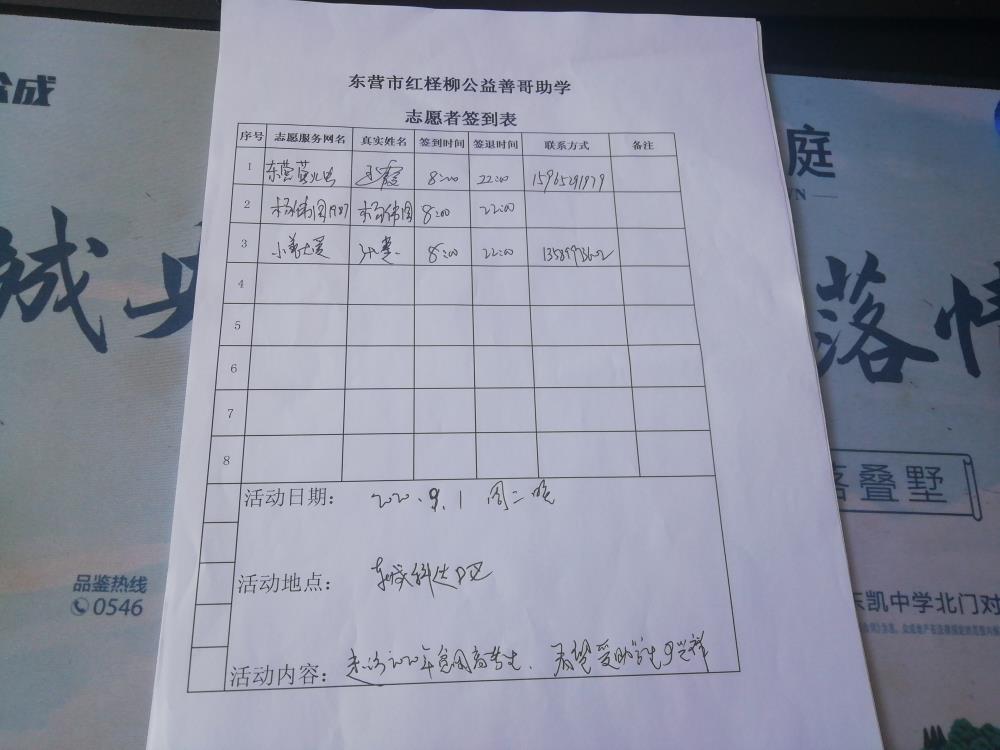 东营市红柽柳公益善哥助学
志愿者签到表
序号 志愿服务网名 真实姓名 签到时间 签退时间 联系方式 备注
1 东营萤火虫 8:00 22:00 15965291979
2 杨伟国1987 杨伟国 8:00 22:00
3 小善大爱 8:00 22:00
4
5
6
7
8
活动日期: 2020.9.1 周二晚
活动地点: 东城科达D区
活动内容: 走访2020年贫困高考生. 看望受助学生
成
品鉴热线
0546
庭
落
叠墅
东凯中学北门对